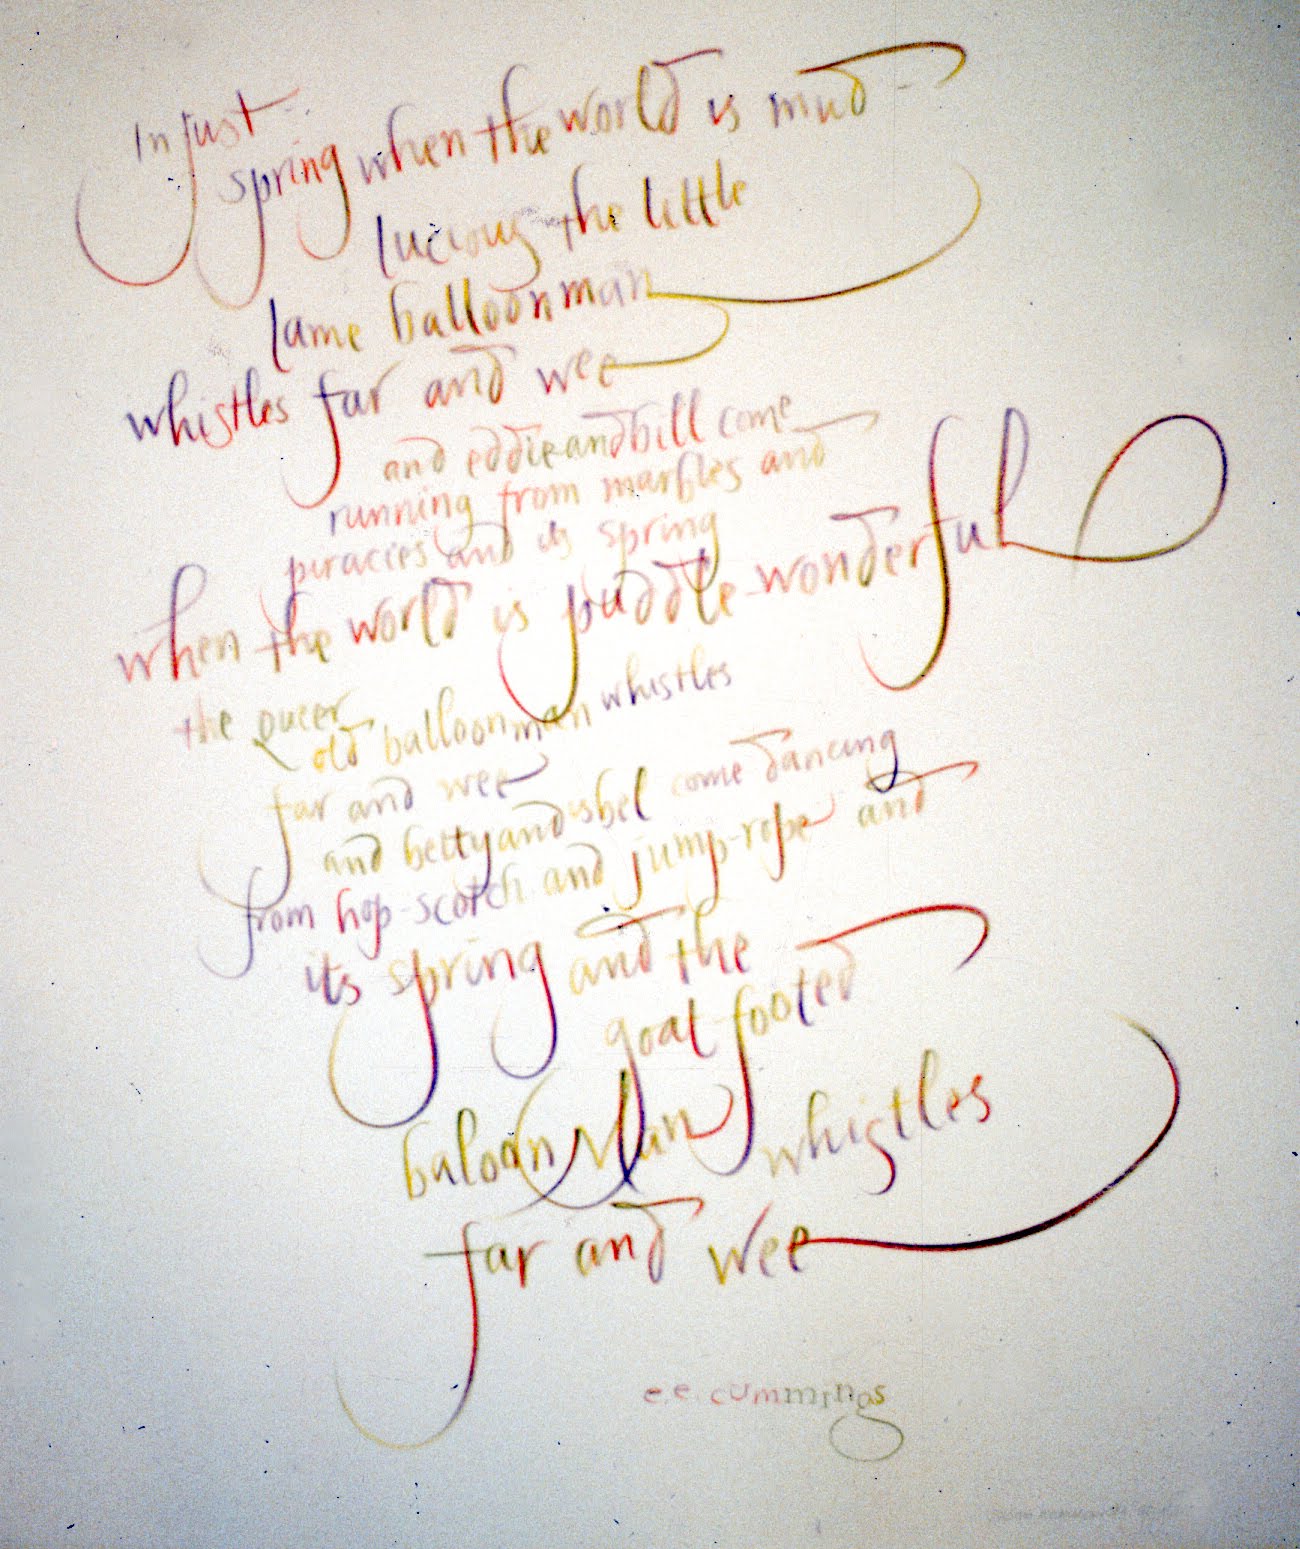 in just
spring when the world is mud-
lucious the little
lame balloonman
whistles far and wee
and eddieandbill come
running from marbles and
piracies and its spring
when the world is puddle-wonderful
the queer
old balloonman whistles
far and wee
and bettyandisbel come dancing
from hop-scotch and jump-rope and
its spring and the
goat footed
baloonMan whistles
far and wee
e.e. cummings